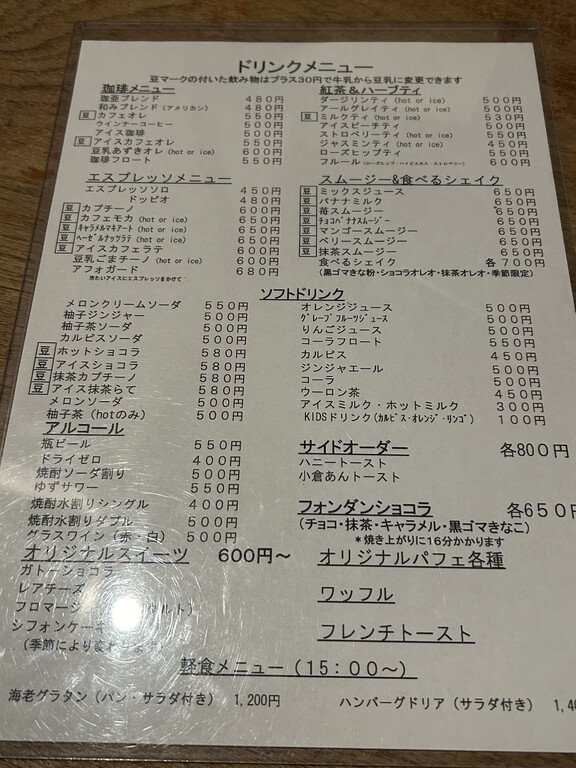 ドリンクメニュー
豆マークの付いた飲み物はプラス30円で牛乳から豆乳に変更できます
珈琲メニュー
珈亜ブレンド 480円
和みブレンド(アメリカン) 480円
豆 カフェオレ 550円
ウインナーコーヒー 550円
アイス珈琲 500円
豆 アイスカフェオレ 550円
豆乳あずきオレ (hot or ice) 600円
珈琲フロート 550円
エスプレッソメニュー
エスプレッソソロ 450円
ドッピオ 480円
豆 カプチーノ 600円
豆 カフェモカ (hot or ice) 650円
豆 キャラメルマキアート (hot or ice) 650円
豆 ヘーゼルナッツラテ (hot or ice) 650円
豆 アイスカフェラテ 600円
豆乳ごまチーノ (hot or ice) 600円
アフォガード 680円
冷たいアイスにエスプレッソをかけて
紅茶&ハーブティ
ダージリンティ (hot or ice) 500円
アールグレイティ (hot or ice) 500円
豆 ミルクティ (hot or ice) 530円
アイスピーチティ 500円
ストロベリーティ (hot or ice) 550円
ジャスミンティ (hot or ice) 450円
ローズヒップティ 550円
フルール (ローズヒップ・ハイビスカス・ストロベリー) 600円
スムージー&食べるシェイク
豆 ミックスジュース 650円
豆 バナナミルク 650円
豆 苺スムージー 650円
豆 チョコバナナスムージー 650円
豆 マンゴースムージー 650円
豆 ベリースムージー 650円
豆 抹茶スムージー 650円
食べるシェイク 各 700円
(黒ゴマきな粉・ショコラオレオ・抹茶オレオ・季節限定)
ソフトドリンク
メロンクリームソーダ 550円
柚子ジンジャー 500円
柚子茶ソーダ 500円
カルピスソーダ 500円
豆 ホットショコラ 580円
豆 アイスショコラ 580円
豆 抹茶カプチーノ 580円
豆 アイス抹茶らて 580円
メロンソーダ 500円
柚子茶 (hotのみ) 500円
オレンジジュース 500円
グレープフルーツジュース 500円
りんごジュース 500円
コーラフロート 550円
カルピス 450円
ジンジャエール 500円
コーラ 500円
ウーロン茶 450円
アイスミルク・ホットミルク 300円
KIDSドリンク(カルピス・オレンジ・リンゴ) 100円
アルコール
瓶ビール 550円
ドライゼロ 400円
焼酎ソーダ割り 500円
ゆずサワー 550円
焼酎水割りシングル 400円
焼酎水割りダブル 500円
グラスワイン(赤・白) 500円
サイドオーダー 各800円
ハニートースト
小倉あんトースト
フォンダンショコラ 各650円
(チョコ・抹茶・キャラメル・黒ゴマきなこ)
*焼き上がりに16分かかります
オリジナルスイーツ 600円~
ガトーショコラ
レアチーズ
フロマージ
シフォンケーキ
(季節により変わります)
オリジナルパフェ各種
ワッフル
フレンチトースト
軽食メニュー(15:00~)
海老グラタン(パン・サラダ付き) 1,200円
ハンバーグドリア(サラダ付き)